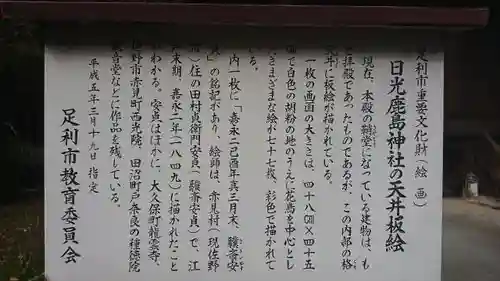 足利市重要文化財(絵画)
日光鹿島神社の天井板絵
現在、本殿の鞘堂になっている建物は、も
と拝殿であったものであるが、この内部の格
天井に板絵が描かれている。
一枚の画面の大きさは、四十八㎝×四十五
㎝で白色の胡粉の地のうえに花鳥を中心とし
さまざまな絵が七十七枚、彩色で描かれて
いる。
内一枚に「嘉永二己酉年真三月末、驥斎安
貞」の銘記があり、絵師は、赤見村(現佐野
市)住の田村貞衛門安貞(驥斎安貞)で、江
戸末期、嘉永二年(一八四九)に描かれたこと
がわかる。安貞はほかに、大久保町龍雲寺、
佐野市赤見町西光院、田沼町戸奈良の種徳院
観音堂などに作品を残している。
平成五年三月十九日 指定
足利市教育委員会